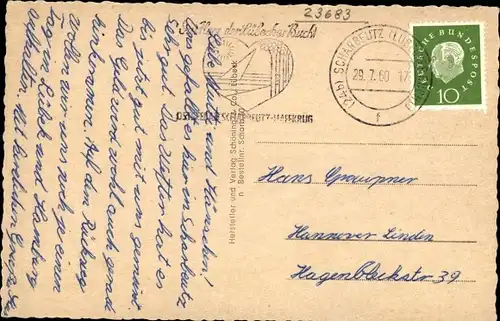 23683
Im Herzen der Lübecker Bucht
OSTSEEBAD SCHARBEUTZ-HAFFKRUG
(24b) SCHARBEUTZ (LÜB
29.7.60.-17
f
DEUTSCHE BUNDESPOST
10
Liebe Mutti und Hänschen!
Uns gefällt es hier in Scharbeutz
Sehr gut. Das Wetter hat es
bis jetzt gut mit uns gemeint
Das Geld wird wohl auch gerade
hinkommen. Auf dem Rückweg
wollen wir uns noch je einen
Tag in Lübeck und Hamburg
aufhalten. Mit herzlichen Grüßen
Hersteller und Verlag Schöning & Co., Lübeck
Bestellnr. Scharb.
Hans Graupner
Hannover Linden
Hagenbleckstr. 39